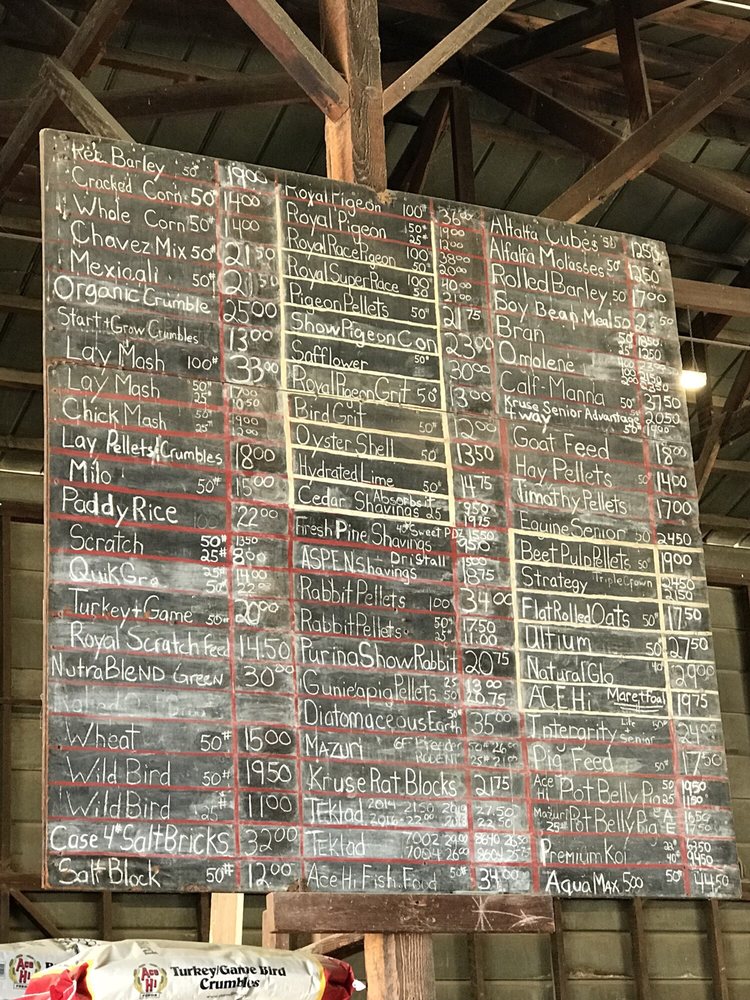 Barley 50# 19.00
Cracked Corn 50# 14.00
Whole Corn 50# 14.00
Chavez Mix 50# 21.50
Mexicali 50#
Organic Crumble 25.00
Start + Grow Crumbles 13.00
Lay Mash 100# 33.00
Lay Mash 50# 25#
Chick Mash 50# 25#
Lay Pellets/Crumbles 18.00
Milo 50# 15.00
Paddy Rice 22.00
Scratch 50# 13.50
25# 8.00
QuikGro 25# 14.00
50#
Turkey + Game 50# 20.00
Royal Scratch Feed 14.50
NutraBlend Green 30.00
Wheat 50# 15.00
Wild Bird 50# 19.50
Wild Bird 25# 11.00
Case 4# Salt Bricks 32.00
Salt Block 50# 12.00
Royal Pigeon 100# 36.00
Royal Pigeon 50# 25#
Royal Race Pigeon 100# 50# 38.00 20.00
Royal Super Race 100# 50# 40.00 21.00
Pigeon Pellets 50# 21.75
Show Pigeon Con 23.00
Safflower 50# 30.00
Royal Pigeon Grit 50# 13.00
Bird Grit 50# 12.00
Oyster Shell 50# 13.50
Hydrated Lime 50# 14.75
Cedar Shavings Absorbe it 25 9.50
19.75
Fresh Pine Shavings Sweet PDZ
ASPEN Shavings Dri Stall 18.75
Rabbit Pellets 100# 34.00
Rabbit Pellets 50# 25# 17.50 11.00
Purina Show Rabbit 20.75
Guniea pig Pellets 25 50 20.75
Diatomaceous Earth 50# 35.00
Mazuri 6F Breeder
Rodent
Kruse Rat Blocks 21.75
Teklad 2014 21.50 2018 27.50
2016 22.00 22.50
Teklad 7002 8640
7004 26.00 8604
Ace Hi Fish Food 50# 34.00
Alfalfa Cubes 50# 12.50
Alfalfa Molasses 50# 12.50
Rolled Barley 50# 17.00
Soy Bean Meal 50
Bran
Omolene
Calf-Manna 37.50
Kruse Senior Advantage 20.50
4 way 50#
Goat Feed 18.00
Hay Pellets 50# 14.00
Timothy Pellets 17.00
Equine Senior 50 24.50
Beet Pulp Pellets 50# 19.00
Strategy Triple Crown 24.50
Flat Rolled Oats 50# 17.50
Ultium 50# 27.50
Natural Glo 40# 29.00
ACE Hi Maretfoal 19.75
Intergrity Lite + Senior 50# 24.00
Pig Feed 50# 17.50
Ace Hi Pot Belly Pig 50 19.50
25 11.50
Mazuri 25# Pot Belly Pig
Premium Koi 22#
40# 94.50
Aqua Max 500 50# 44.50
Ace Hi
Ace Hi
Turkey/Game Bird
Crumbles